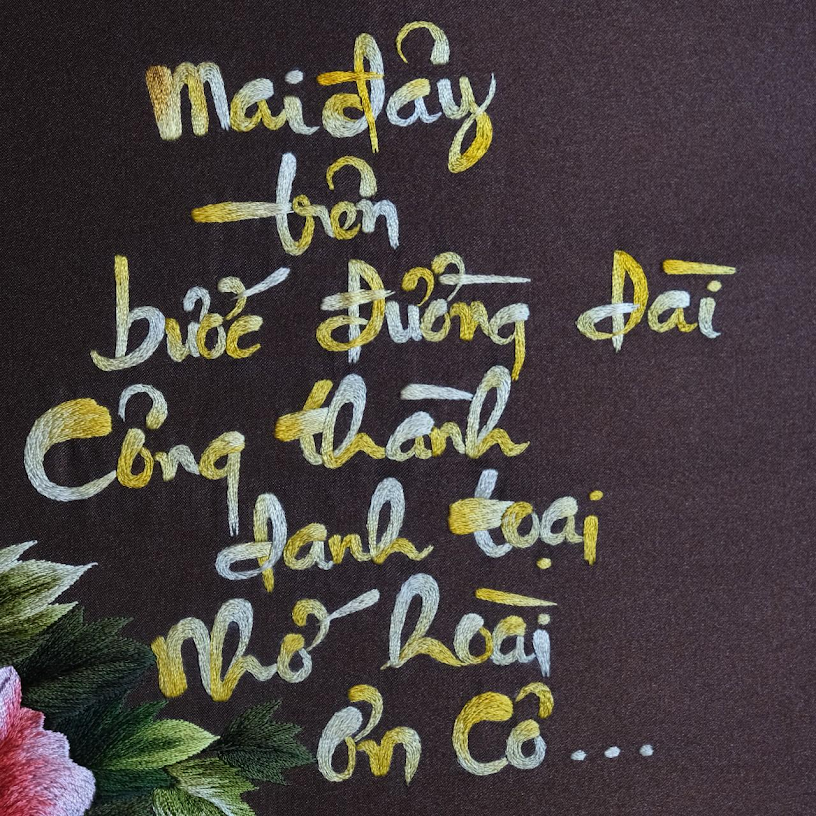 Mai đây
trên
bước Đường Đài
Công thành
danh toại
Nhớ hoài
ơn Cô...